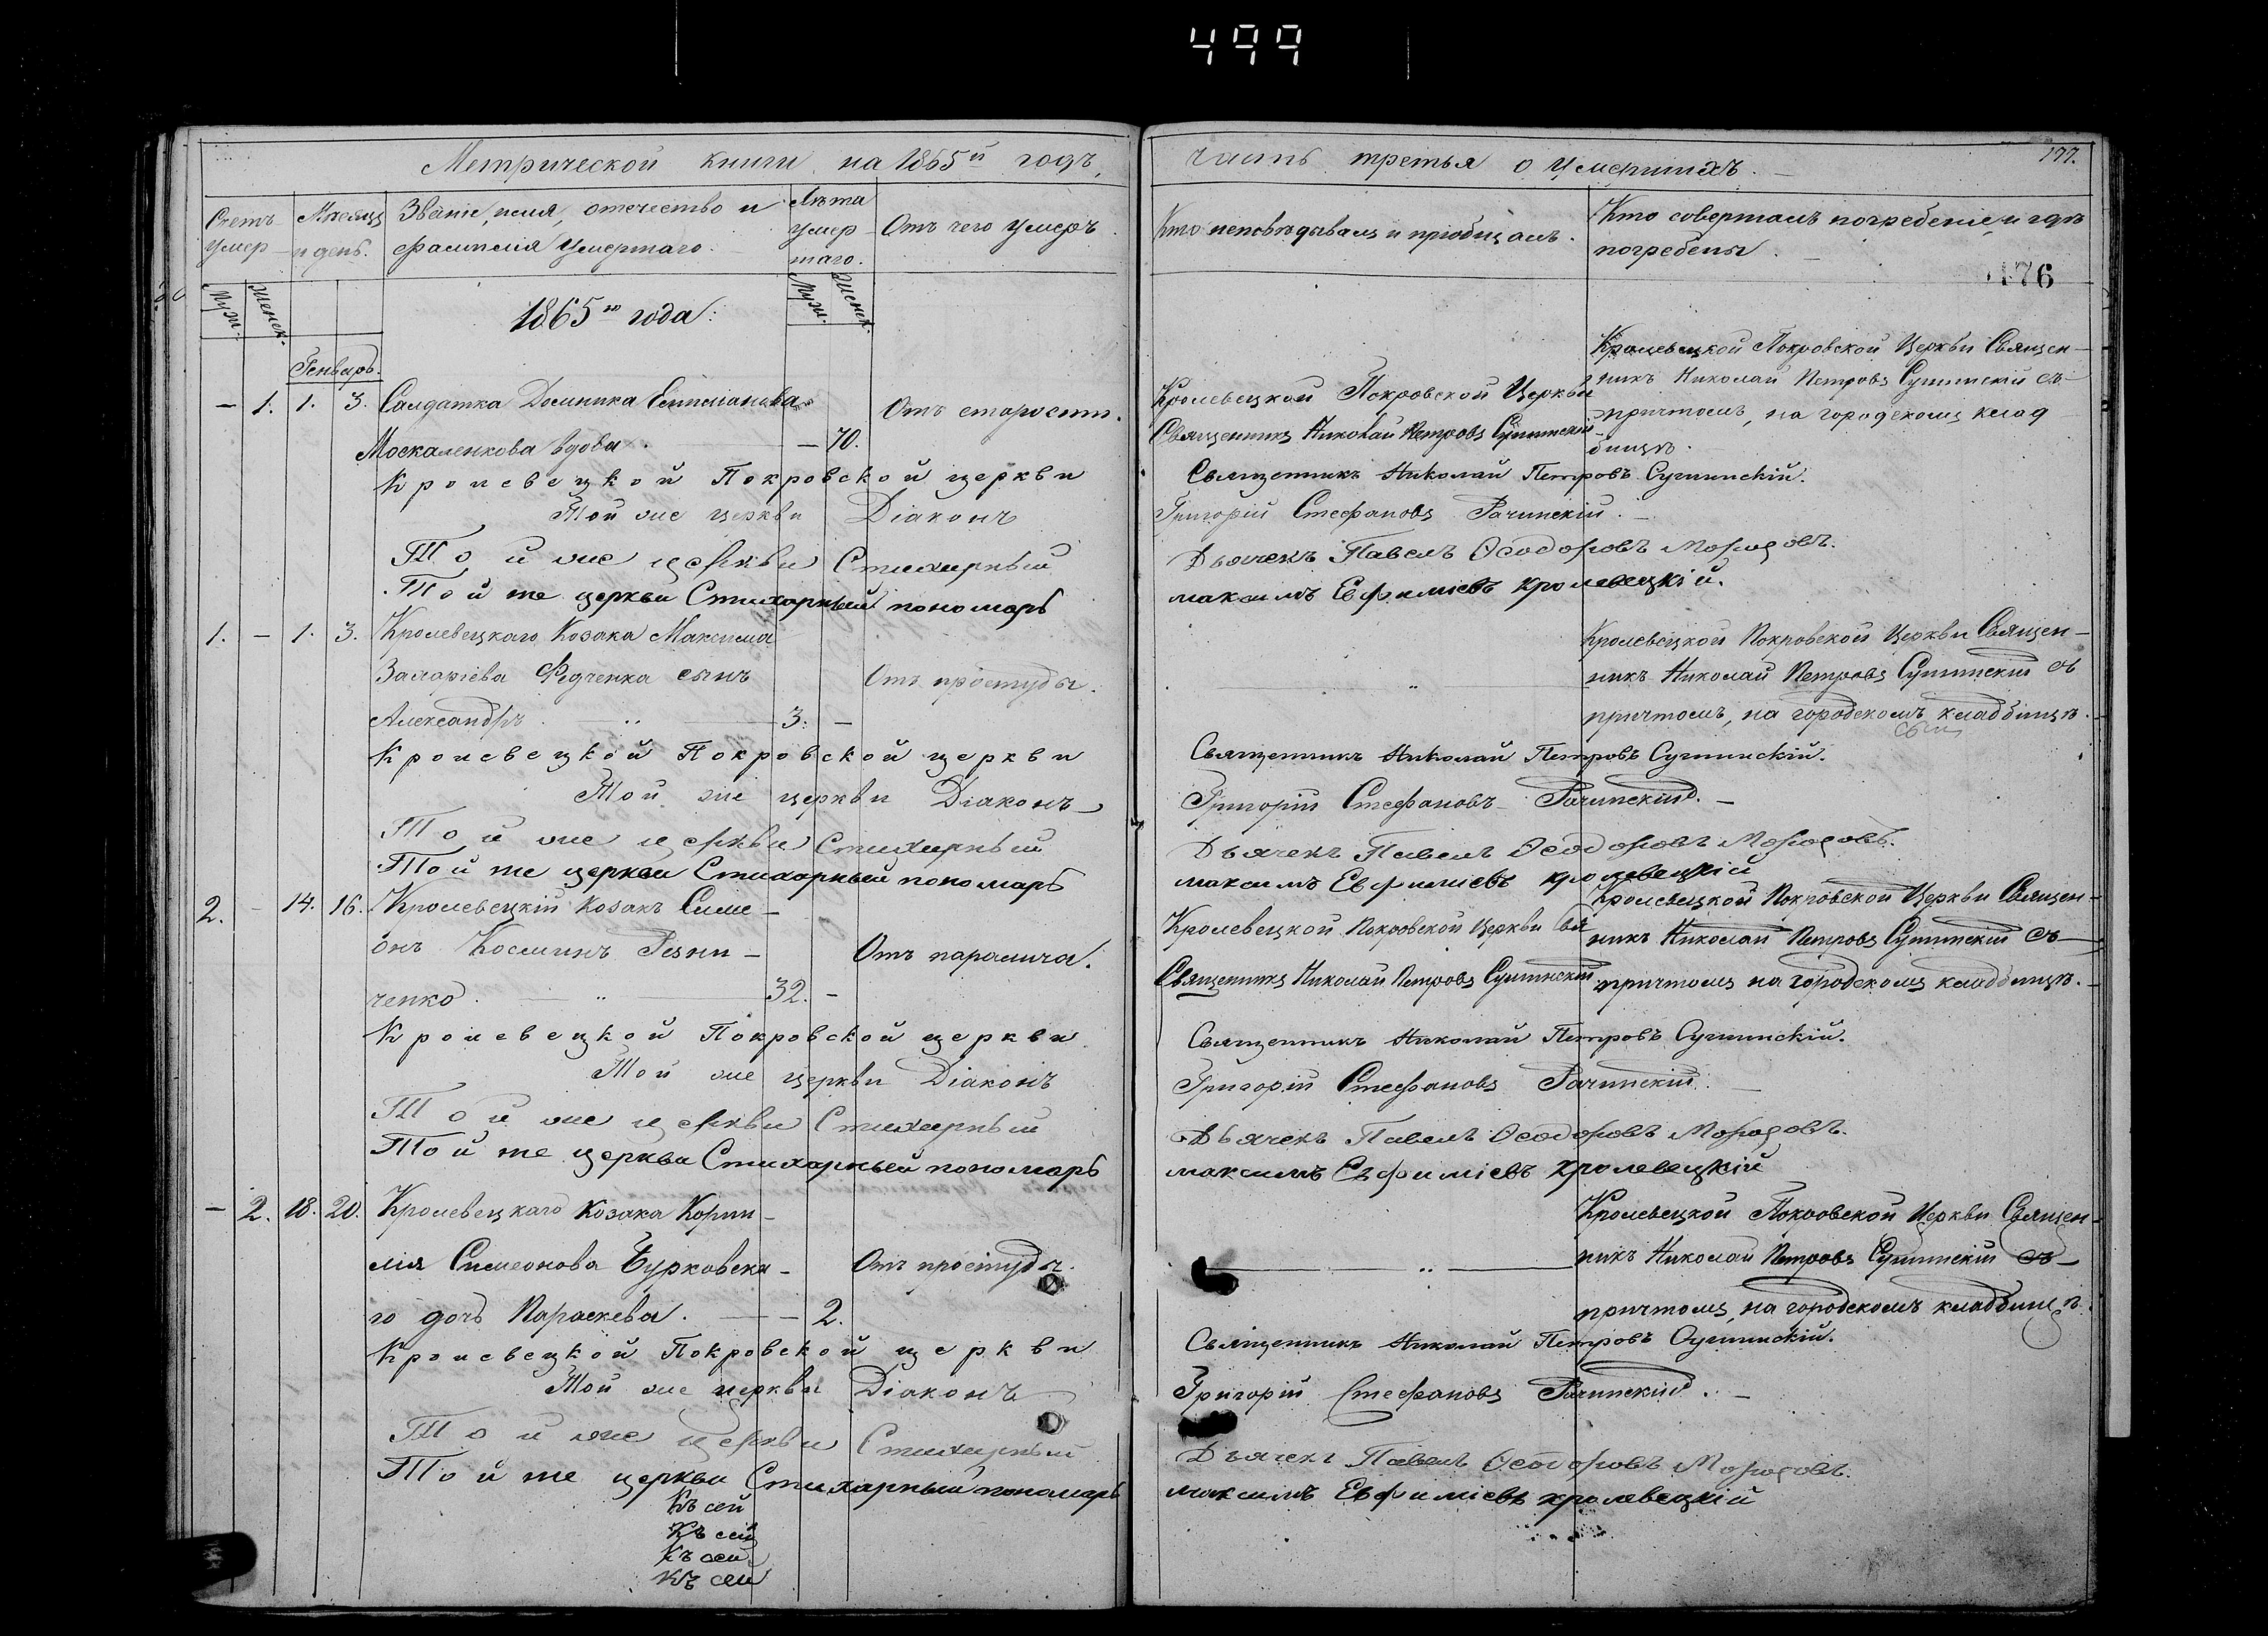 499
Метрической книги на 1865й годъ,
Счетъ умер
Мѣсяцъ и день.
Званіе, имя, отечество и фамилія умершаго.
Лѣта умер шаго.
Отъ чего умеръ
Муж.
Женск.
Муж.
Женск.
1865го года:
Генварь.
— 1. 1. 3. Салдатка Домника
Отъ старости.
Москаленкова вдова. — 70.
Кролевецкой Покровской церкви
Той же церкви Діаконъ
Той же церкви Стихарный
Той же церкви Стихарный пономарь
1. — 1. 3. Кролевецкаго Козака Максима
Захаріева Федченка сынъ
Отъ простуды.
Александръ. — 3. —
Кролевецкой Покровской церкви
Той же церкви Діаконъ
Той же церкви Стихарный
Той же церкви Стихарный пономарь
2. — 14. 16. Кролевецкій Козакъ Симе-
онъ Косминъ Резни-
Отъ паралича.
ченко. — 32. —
Кролевецкой Покровской церкви
Той же церкви Діаконъ
Той же церкви Стихарный
Той же церкви Стихарный пономарь
— 2. 18. 20. Кролевецкаго Козака Корни-
лія Симеонова Бурковска-
Отъ простуды.
го дочь Параскева. — 2.
Кролевецкой Покровской церкви
Той же церкви Діаконъ
Той же церкви Стихарный
Той же церкви Стихарный пономарь
Къ сей
Къ сей
Къ сей
Къ сей
часть третья о умершихъ.
177.
Кто исповѣдывалъ и пріобщалъ.
Кто совершалъ погребеніе, и гдѣ
погребены.
176
Кролевецкой Покровской Церкви
Священникъ Николай Петровъ Сушинскій
Кролевецкой Покровской Церкви Священ-
никъ Николай Петровъ Сушинскій съ
причтомъ, на городскомъ клад
бищѣ.
Священникъ Николай Петровъ Сушинскій.
Григорій Стефановъ Рачинскій.
Дьячекъ Павелъ Ѳеодоровъ
максимъ Евфиміевъ кролевецкій.
Кролевецкой Покровской Церкви Священ-
никъ Николай Петровъ Сушинскій съ
причтомъ, на городскомъ кладбищѣ.
Священникъ Николай Петровъ Сушинскій.
Григорій Стефановъ Рачинскій. —
Дьячекъ Павелъ Ѳеодоровъ
максимъ Евфиміевъ кролевецкій
Кролевецкой Покровской Церкви
Священникъ Николай Петровъ Сушинскій
Кролевецкой Покровской Церкви Священ-
никъ Николай Петровъ Сушинскій съ
причтомъ на городскомъ кладбищѣ.
Священникъ Николай Петровъ Сушинскій.
Григорій Стефановъ Рачинскій
Дьячекъ Павелъ Ѳеодоровъ
максимъ Евфиміевъ кролевецкій
Кролевецкой Покровской Церкви Священ-
никъ Николай Петровъ Сушинскій съ
причтомъ, на городскомъ кладбищѣ.
Священникъ Николай Петровъ Сушинскій.
Григорій Стефановъ Рачинскій. —
Дьячекъ Павелъ Ѳеодоровъ
максимъ Евфиміевъ кролевецкій